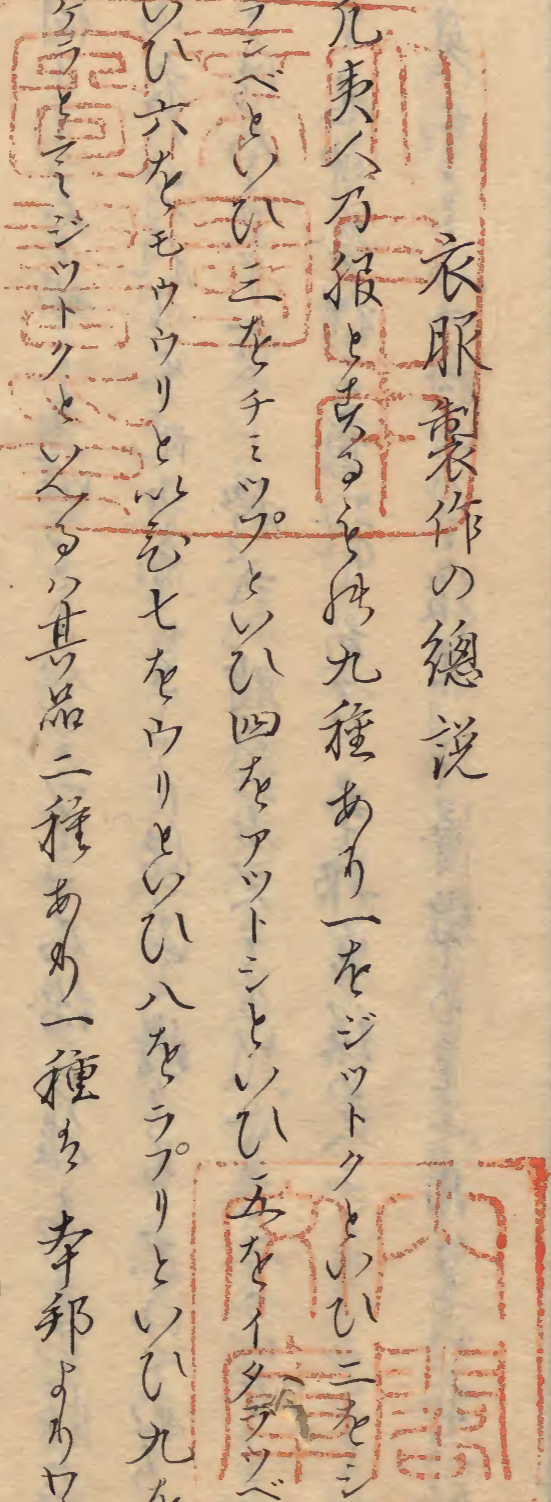 衣服製作の總説
凡夷人乃服とする其類九種あり一をジットクといひ二をシ
ランベといひ三をチミツプといひ四をアツトシといひ五をイタラツペ
いひ六をモウウリと以ひ七をウリといひ八をラプリといひ九を
ケラと云ジツトクといへるハ其品二種あり一種は本邦よりワ